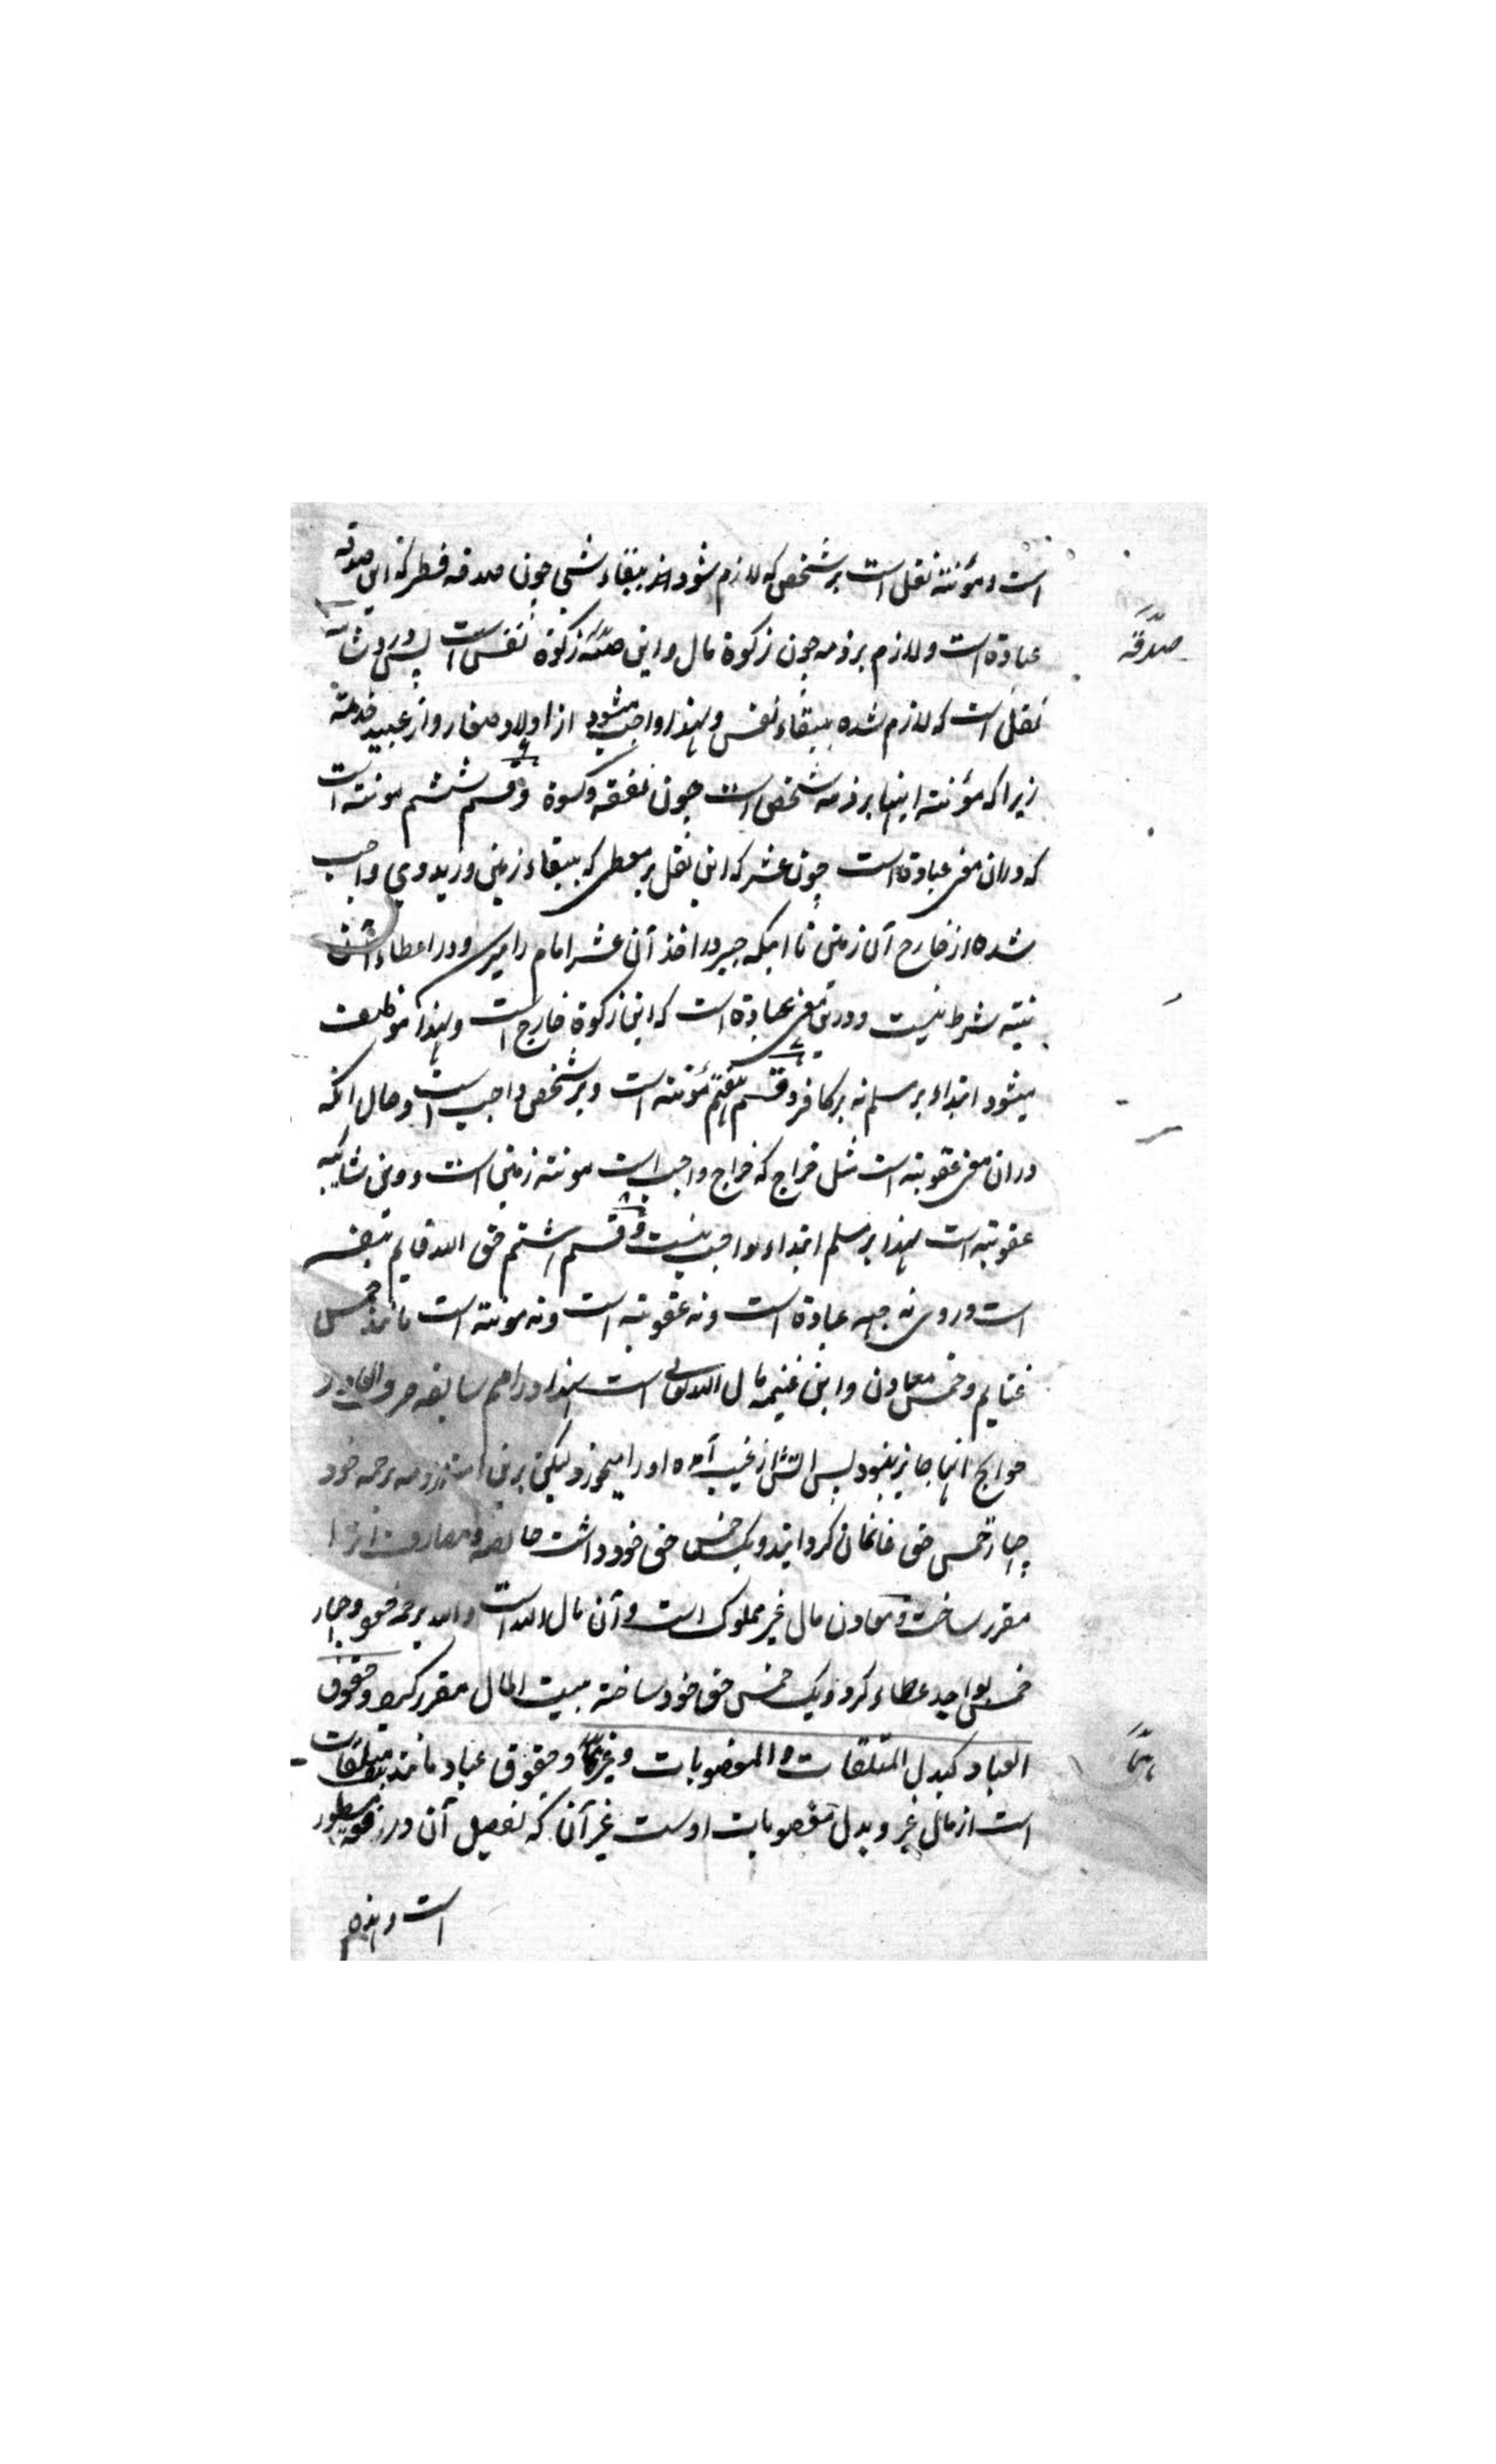 است و مؤنته ثقل است بر شخص که لازم شود اند ببقاء شی چون صدقه فطر که این صدقه
عبادة است و لازم بر ذمه چون زکوة مال و این صدقه زکوة نفس است پس در و شائبه
صدقة
ثقل است که لازم شده ببقاء نفس و لهذا واجب میشود از اولاد صغار و از عبید خدمته
زیرا که مؤنته اینها بر ذمه شخص است چون نفقه و کسوة و قسم ششم مونته است
که دران معنی عبادة است چون عشر که این ثقل بر معطی که ببقاء زمین در ید وی واجب
شده از خارج آن زمین تا اینکه جبر در اخذ آن عشر امام را میرسد و در اعطاء آن
نیته شرط نیست و درین معنی عبادة است که این زکوة خارج است و لهذا موظف
میشود ابتداء بر مسلم نه بر کافر و قسم هفتم مؤنته است و بر شخص واجب است و حال آنکه
دران معنی عقوبته است مثل خراج که خراج واجب است مونته زمین است و درین شایبه
عقوبته است لهذا بر مسلم ابتداء واجب نیست و قسم اشتم حق الله قایم بنفسه
است و در وی نه جهه عبادة است و نه عقوبته است و نه مونته است مانند خمس
غنایم و خمس معادن و این غنیمه مال الله تعالی است لهذا در امم سابقه صرف او در
حوایج آنها جایز نبود پس آتش از غیب آمده او را میخورد لیکن برین امته مرحومه برحمه خود
چهار خمس حق غانمان کردانید و یک خمس حق خود داشت و مصارف آنرا
مقرر ساخت و معادن مال غیر مملوک است و آن مال الله است و الله برحمه خود چهار
خمس بواجد عطاء کرد و یک خمس حق خود ساخته ببیت المال مقرر کرد و حقوق
العباد کبدل المتلفات و المغصوبات و غیرهما و حقوق عباد مانند بدل متلفات
هما
است از مال غیر و بدل مغصوبات اوست غیر آن که تفصیل آن در فقه مسطور
است و هذه